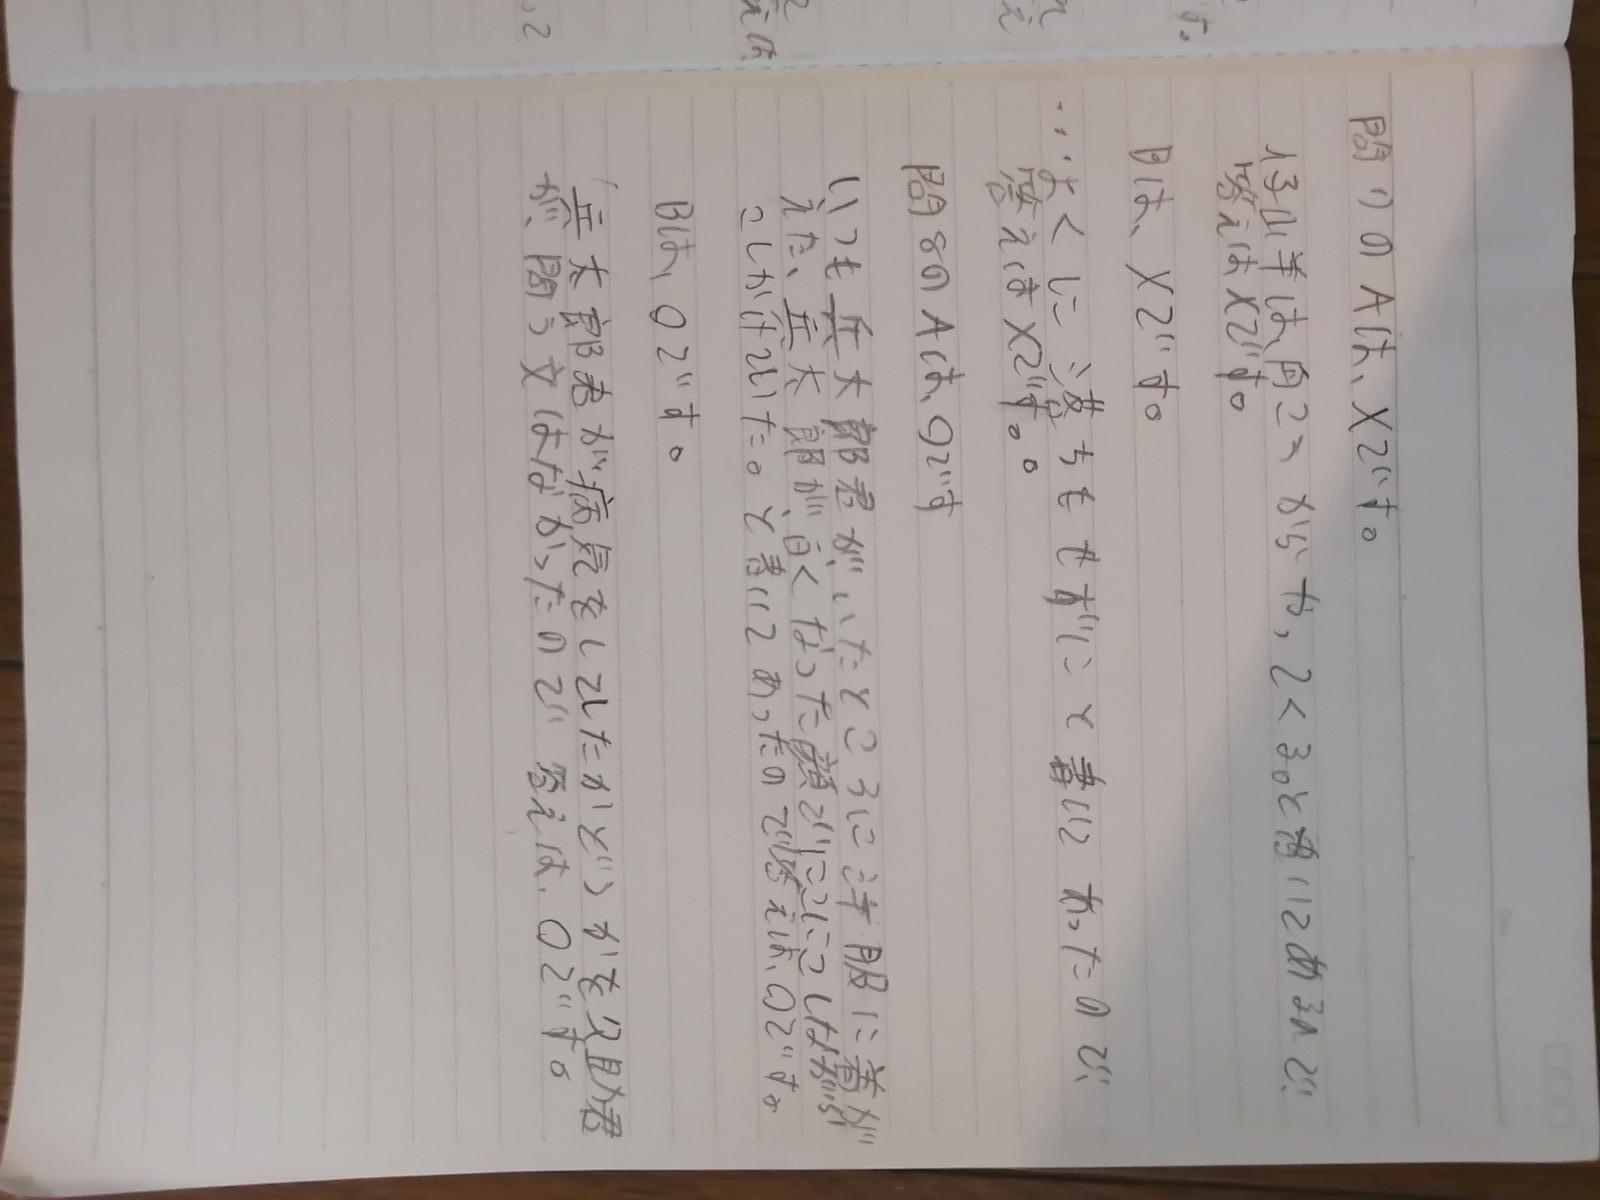 問7のAは、Xです。
仔山羊は、向こうからか,てくる。と書いてあるので
答えはXです。
Bは、Xです。
…よくに落ちもせずにと書いてあったので
答えはXです。。
問8のAは、〇です
いつも兵太郎君がいたところに洋服に着が
えた、兵太郎が、白くなった顔でにこにこしながら
こしかけていた。と書いてあったので答えは、〇です。
Bは、〇です。
兵太郎君が病気をしていたかどうかを久助君
が、問う文はなかったので答えは、〇です。